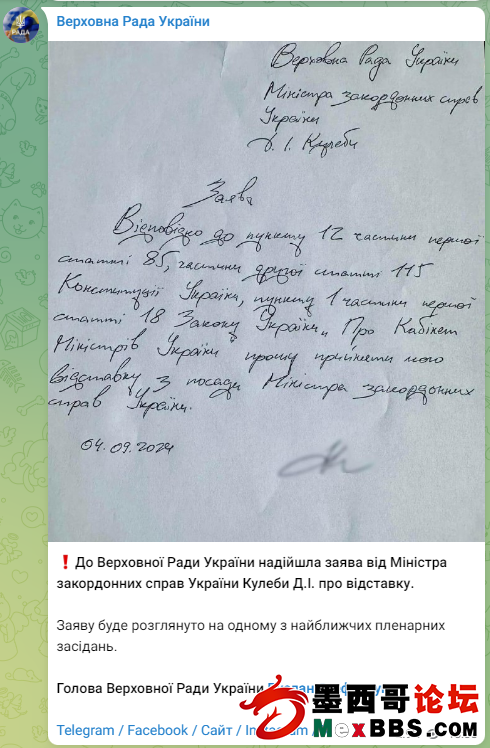 Верховна Рада України
РАДА
Верховна Рада України
Міністра закордонних справ
України
Д. І. Кулеби
Заява
Відповідно до пункту 12 частини першої
статті 85, частини другої статті 115
Конституції України, пункту 1 частини першої
статті 18 Закону України „Про Кабінет
Міністрів України" прошу прийняти мою
відставку з посади Міністра закордонних
справ України.
04.09.2024
❗ До Верховної Ради України надійшла заява від Міністра
закордонних справ України Кулеби Д.І. про відставку.
Заяву буде розглянуто на одному з найближчих пленарних
засідань.
Голова Верховної Ради України
Telegram / Facebook / Сайт /
墨西哥论坛
MexBBS.com